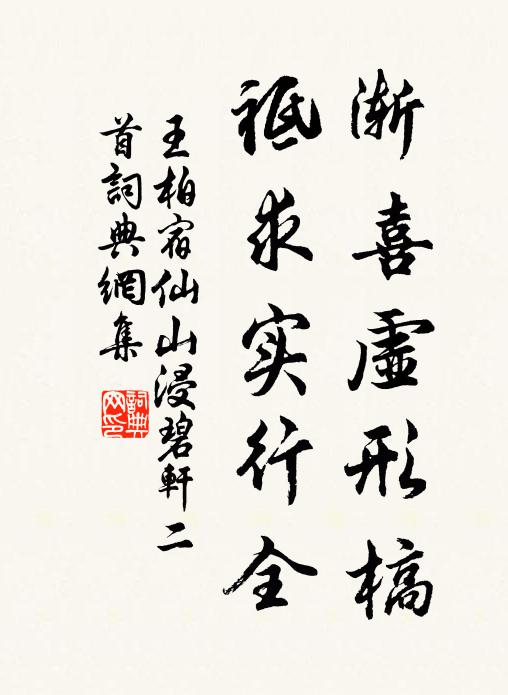 渐喜虚形槁
祗求实行全
王柏宿仙山浸碧軒二
首詞典網集
詞典网印